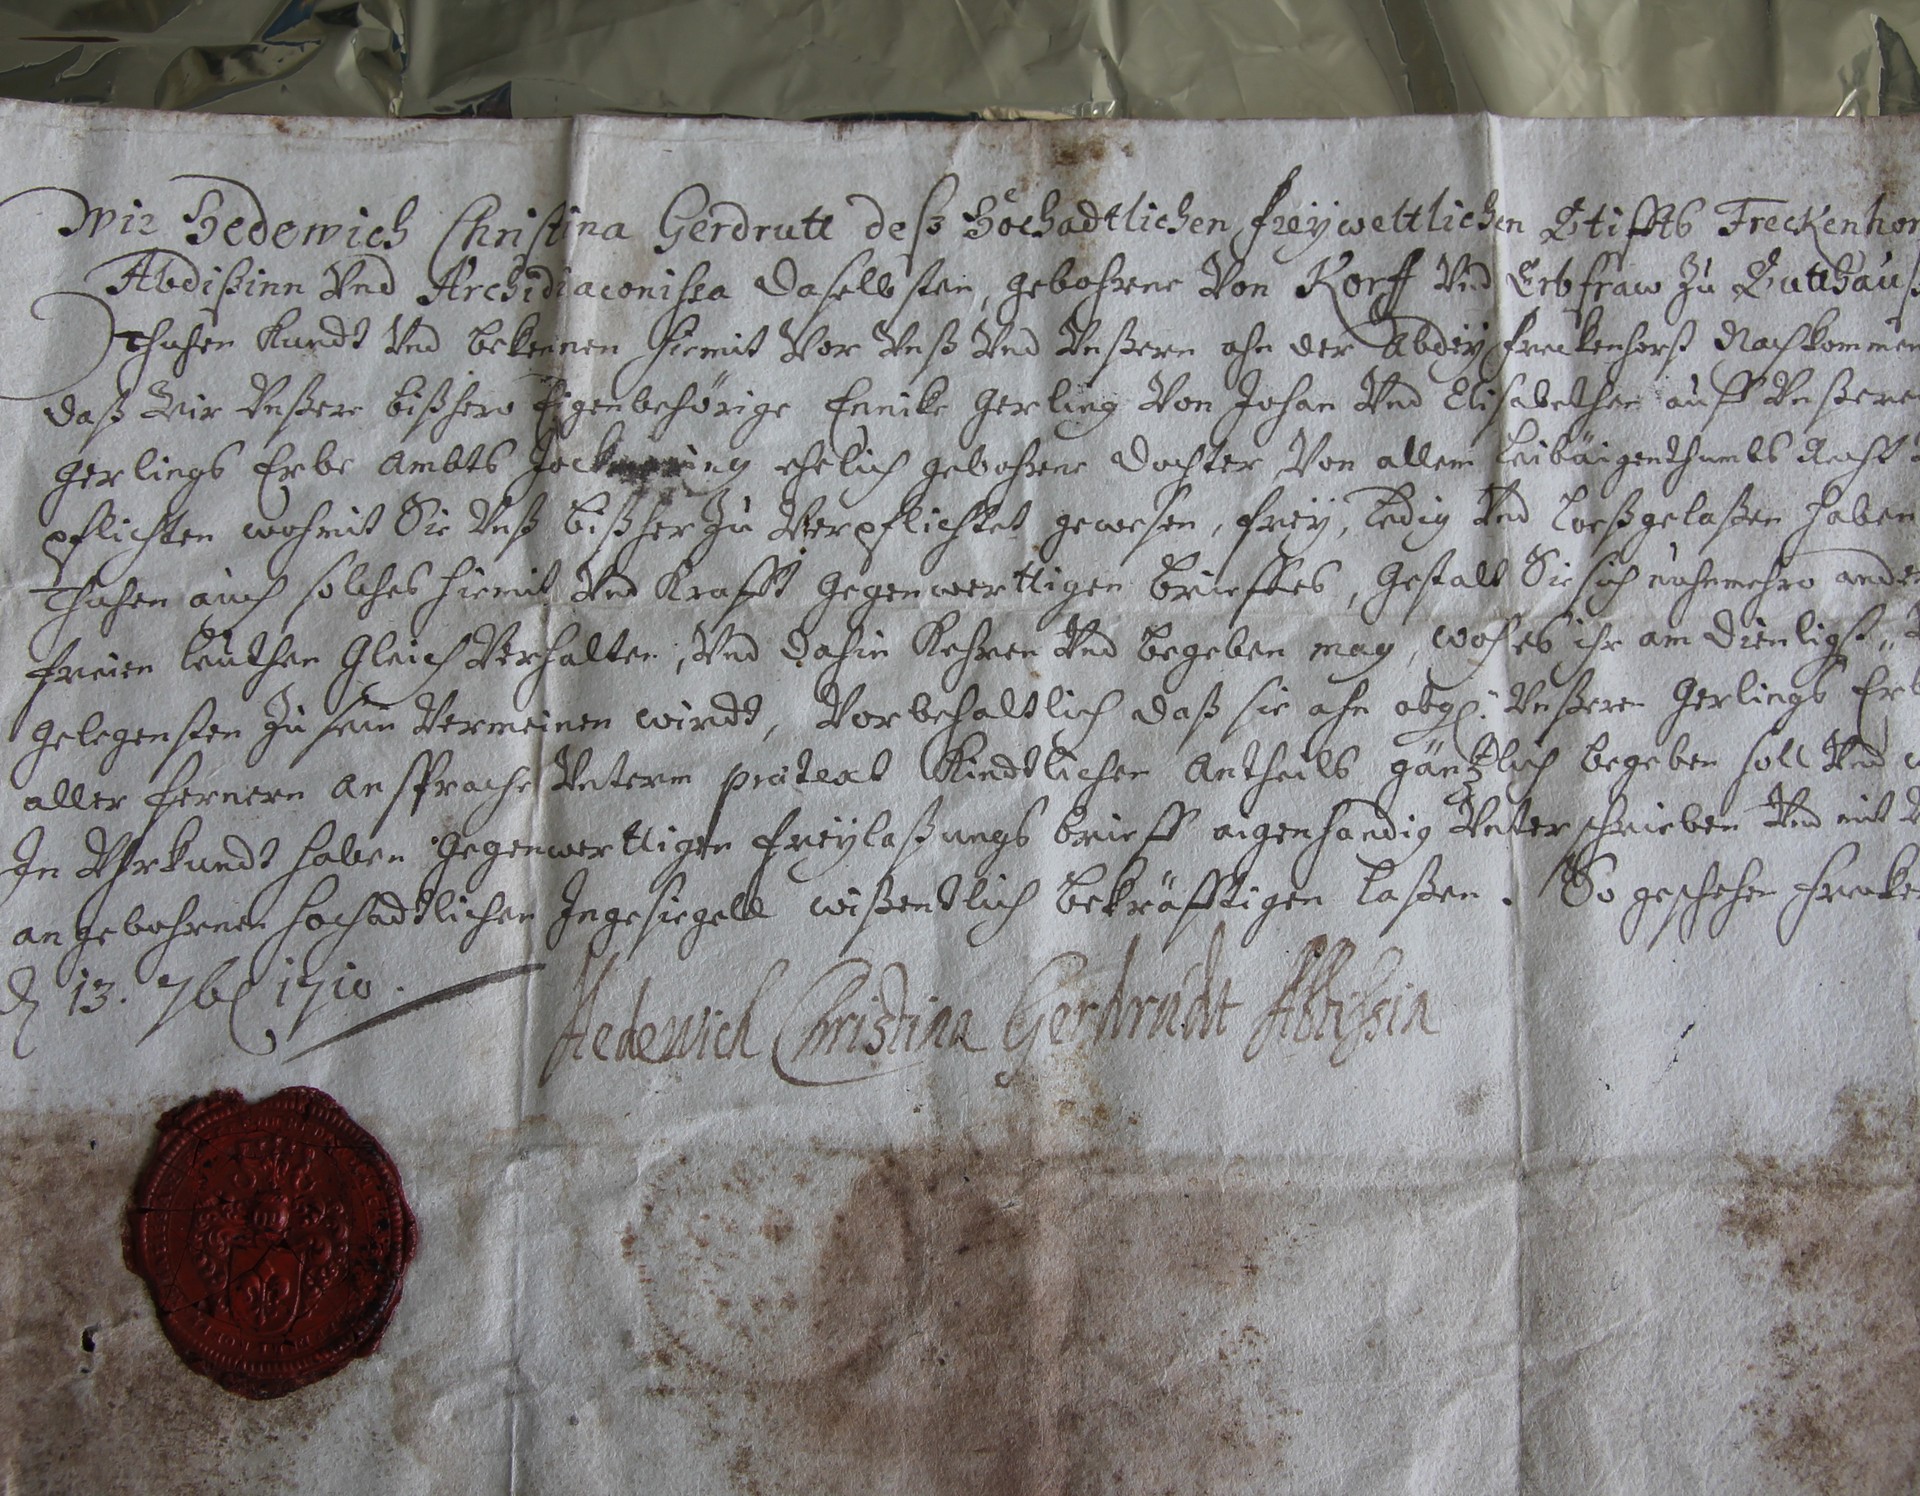 Wir Hedewich Christina Gerdrutt deß Hochadtlichen freÿweltlichen Stiffts Freckenhor
Abdißinn Vnd Archidiaconissa daselbsten, gebohrne Von Korff Vnd Erbfraw zu Sutthauß
Thuhen Kundt Vnd bekennen hiemit Vor Vnß Vnd Vnßern ahn der Abdeÿ freckenhorst Nachkommen
daß Wir Vnßere bißhero Eigenbehörige Ennike Gerling Von Johan Vnd Elisabethen auff Vnßeren
Gerlings Erbe Ambts ehelich gebohrne dochter, Von allem leibäigenthumbs Recht
pflichten wohmit Sie Vnß bißher zu Verpflichtet gewesen, freÿ, ledig Vnd loeßgelaßen haben
Thuhen auch solches hiemit Vnd Krafft gegenwerttigen brieffes, gestalt Sie sich nuhnmehro ander
freien leuthen gleich Verhalten, Vnd dahin Kehren Vnd begeben mag, woh es ihr am dienligst,,
gelegensten zu sein Vermeinen wirdt, Vorbehaltlich daß sie ahn obg. Vnßeren Gerlings Erb
aller fernern ansprache Vnterm prätext Kindtlichen Antheils gäntzlich begeben soll Vnd
In Vhrkundt haben gegenwerttigen freÿlaßungs brieff aigenhandig Vnterschrieben Vnd mit
angebohrnen hochadtlichen Ingesiegell wißentlich bekräfftigen laßen. So geschehen frecken
d 13. 7b 1710.
Hedewich Christina Gerdrudt Abtißin